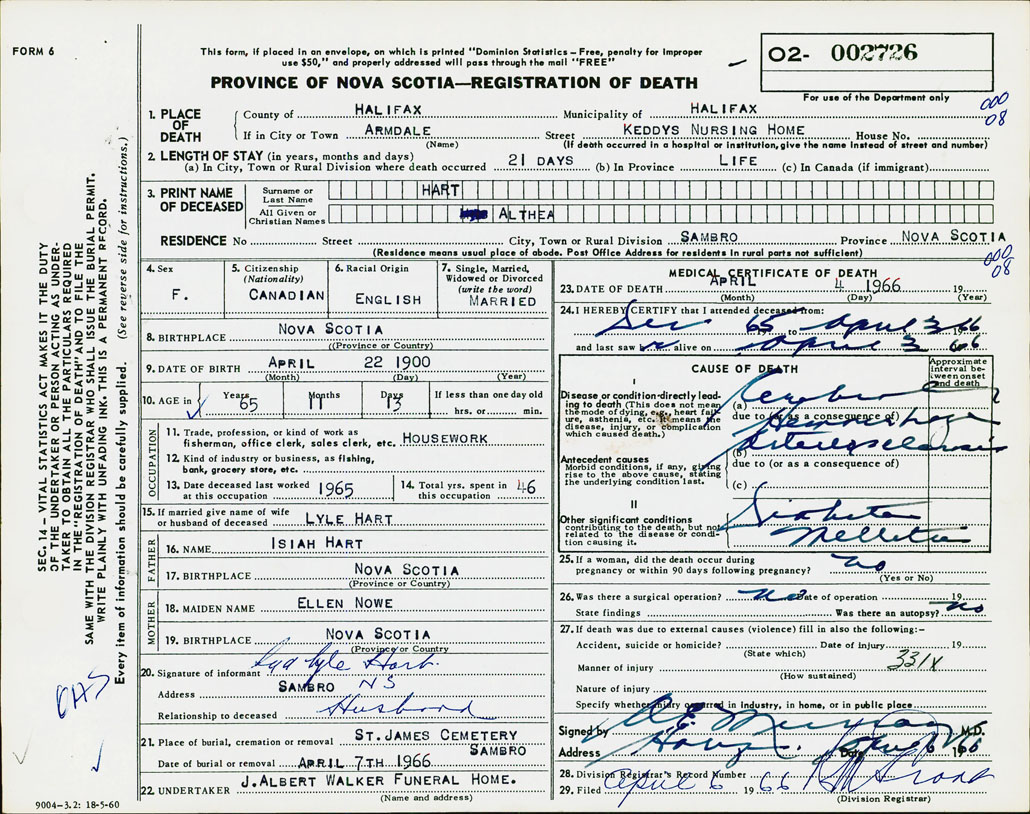 FORM 6
This form, if placed in an envelope, on which is printed "Dominion Statistics – Free, penalty for improper
use $50," and properly addressed will pass through the mail "FREE"
PROVINCE OF NOVA SCOTIA—REGISTRATION OF DEATH
02- 002726
For use of the Department only
000
08
1. PLACE OF DEATH
County of HALIFAX Municipality of HALIFAX
If in City or Town ARMDALE Street KEDDYS NURSING HOME House No.
(Name) (If death occurred in a hospital or institution, give the name instead of street and number)
2. LENGTH OF STAY (in years, months and days)
(a) In City, Town or Rural Division where death occurred 21 DAYS (b) In Province LIFE (c) In Canada (if immigrant)
3. PRINT NAME OF DECEASED
Surname or Last Name HART
All Given or Christian Names ALTHEA
RESIDENCE No Street City, Town or Rural Division SAMBRO Province NOVA SCOTIA
(Residence means usual place of abode. Post Office Address for residents in rural parts not sufficient)
000
08
4. Sex F.
5. Citizenship (Nationality) CANADIAN
6. Racial Origin ENGLISH
7. Single, Married, Widowed or Divorced (write the word) MARRIED
8. BIRTHPLACE NOVA SCOTIA
((Province or Country)
9. DATE OF BIRTH APRIL 22 1900
(Month) (Day) (Year)
10. AGE in Years 65 Months 11 Days 13 If less than one day old
hrs. or min.
OCCUPATION
11. Trade, profession, or kind of work as
fisherman, office clerk, sales clerk, etc. HOUSEWORK
12. Kind of industry or business, as fishing,
bank, grocery store, etc.
13. Date deceased last worked
at this occupation 1965
14. Total yrs. spent in
this occupation 46
15. If married give name of wife
or husband of deceased LYLE HART
FATHER
16. NAME ISIAH HART
17. BIRTHPLACE NOVA SCOTIA
(Province or Country)
MOTHER
18. MAIDEN NAME ELLEN NOWE
19. BIRTHPLACE NOVA SCOTIA
(Province or Country)
20. Signature of informant Lyle Hart
Address SAMBRO NS
Relationship to deceased Husband
21. Place of burial, cremation or removal ST. JAMES CEMETERY
SAMBRO
Date of burial or removal APRIL 7TH 1966
22. UNDERTAKER J. ALBERT WALKER FUNERAL HOME.
(Name and address)
MEDICAL CERTIFICATE OF DEATH
23. DATE OF DEATH APRIL 4 1966 19
(Month) (Day) (Year)
24. I HEREBY CERTIFY that I attended deceased from:
Dec 65 to April 3 1966
and last saw alive on April 3 1966
CAUSE OF DEATH
Approximate interval between onset and death
I
Disease or condition directly leading to death (This does not mean
the mode of dying, e.g., heart failure, asthenia, etc. It means the
disease, injury, or complication
which caused death.)
(a) Cerebral
due to (or as a consequence of)
Hemorrhage
(b) Arteriosclerosis
Antecedent causes
Morbid conditions, if any, giving
rise to the above cause, stating
the underlying condition last.
due to (or as a consequence of)
(c)
II
Other significant conditions
contributing to the death, but not
related to the disease or condition causing it.
Diabetes
Mellitus
25. If a woman, did the death occur during
pregnancy or within 90 days following pregnancy? No
(Yes or No)
26. Was there a surgical operation? No Date of operation 19
State findings Was there an autopsy? No
27. If death was due to external causes (violence) fill in also the following:–
Accident, suicide or homicide? Date of injury 19
(State which)
Manner of injury 331X
(How sustained)
Nature of injury
Specify whether injury occurred in industry, in home, or in public place
Signed by D.E. Murray M.D.
Address Date 6 1966
28. Division Registrar's Record Number
29. Filed April 6 1966
(Division Registrar)
SEC. 14 – VITAL STATISTICS ACT MAKES IT THE DUTY
OF THE UNDERTAKER OR PERSON ACTING AS UNDERTAKER TO OBTAIN ALL THE PARTICULARS REQUIRED
IN THE "REGISTRATION OF DEATH" AND TO FILE THE
SAME WITH THE DIVISION REGISTRAR WHO SHALL ISSUE THE BURIAL PERMIT.
WRITE PLAINLY WITH UNFADING INK. THIS IS A PERMANENT RECORD.
Every item of information should be carefully supplied. (See reverse side for instructions.)
9004-3.2: 18-5-60